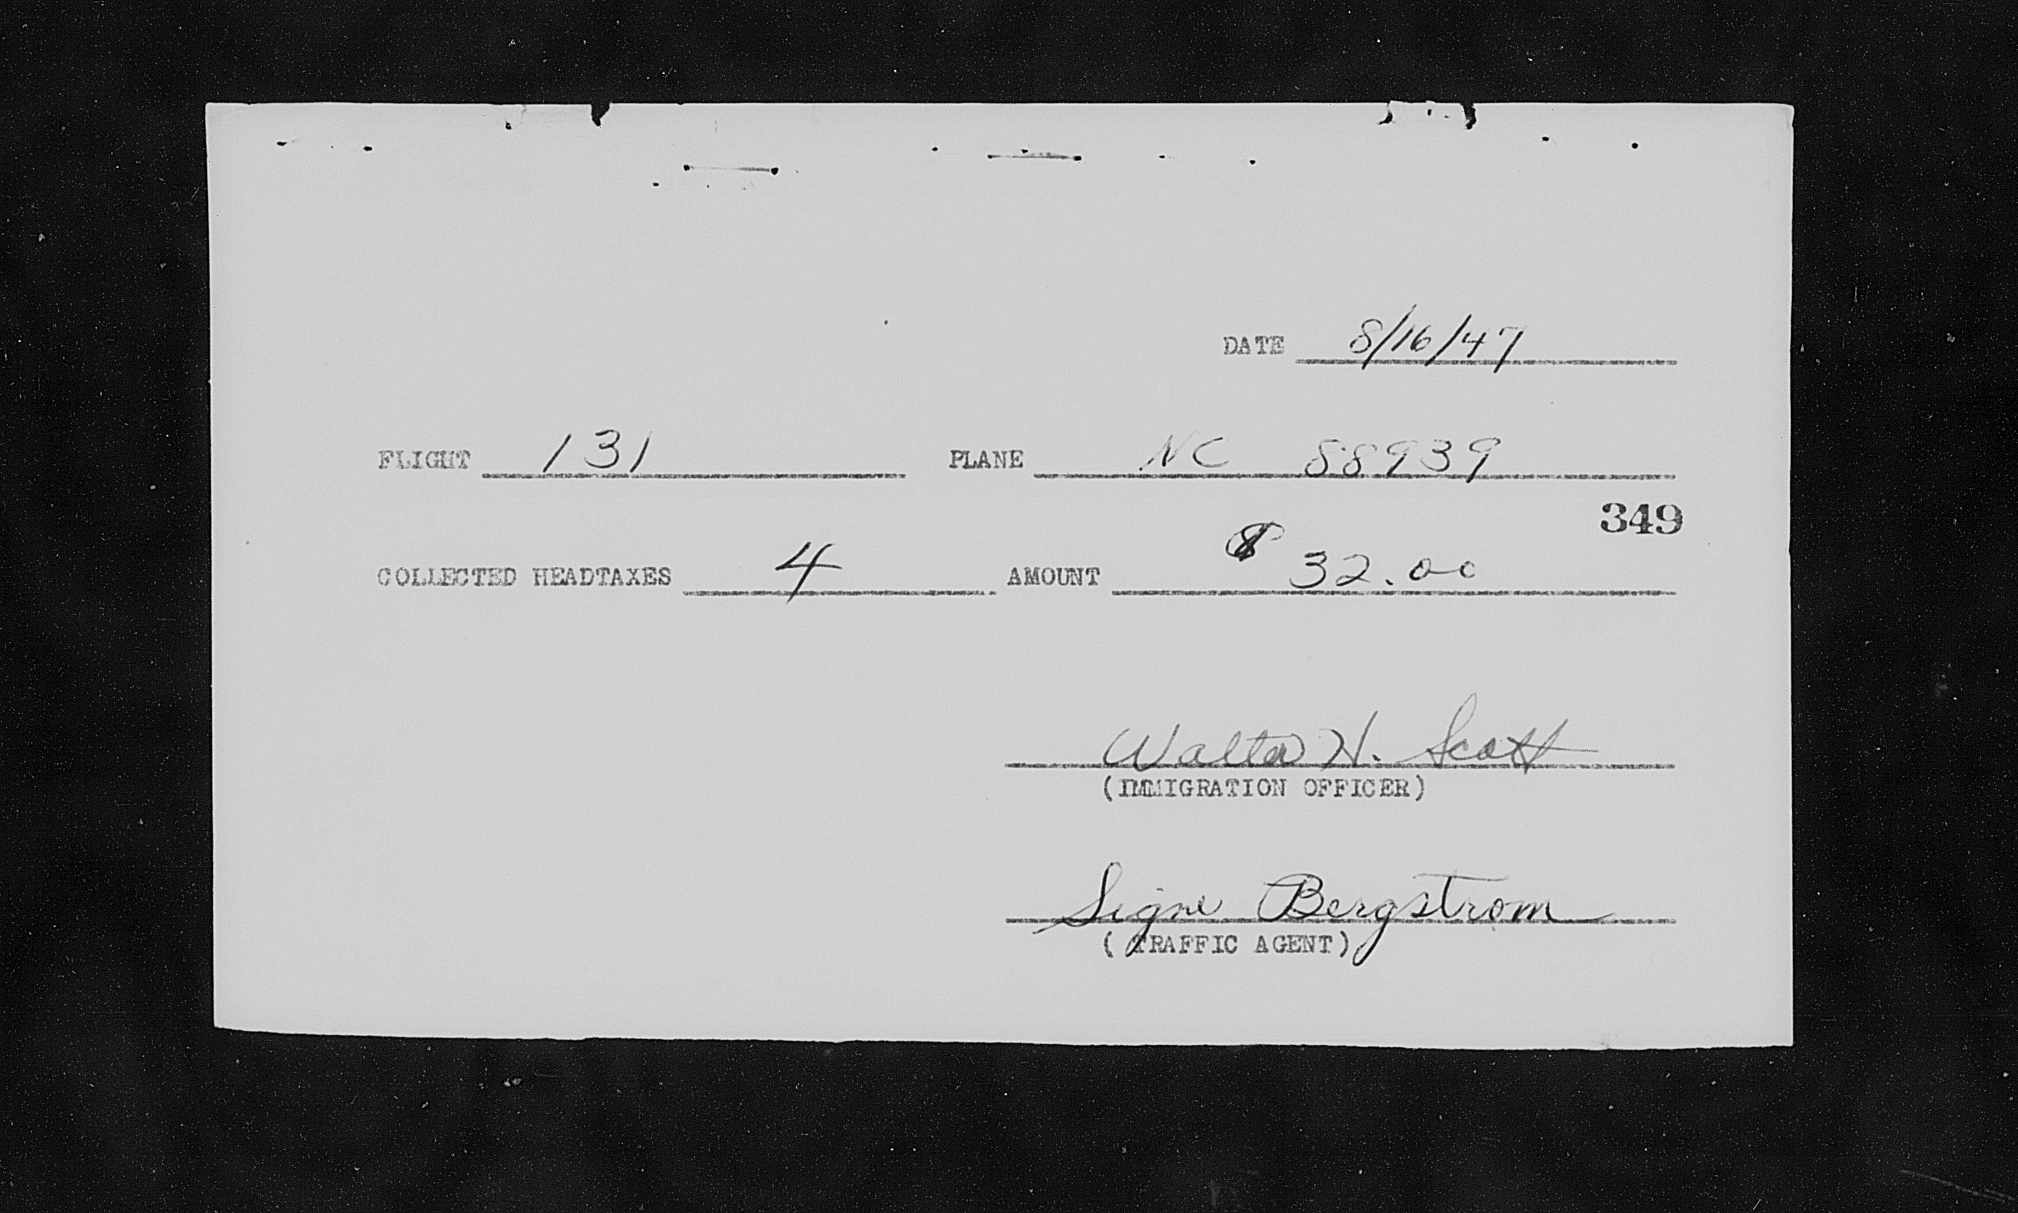 DATE 8/16/47
FLIGHT 131 PLANE NC 88939
349
COLLECTED HEADTAXES 4 AMOUNT $ 32.00
Walter H. Scott
(IMMIGRATION OFFICER)
Signe Bergstrom
( TRAFFIC AGENT)